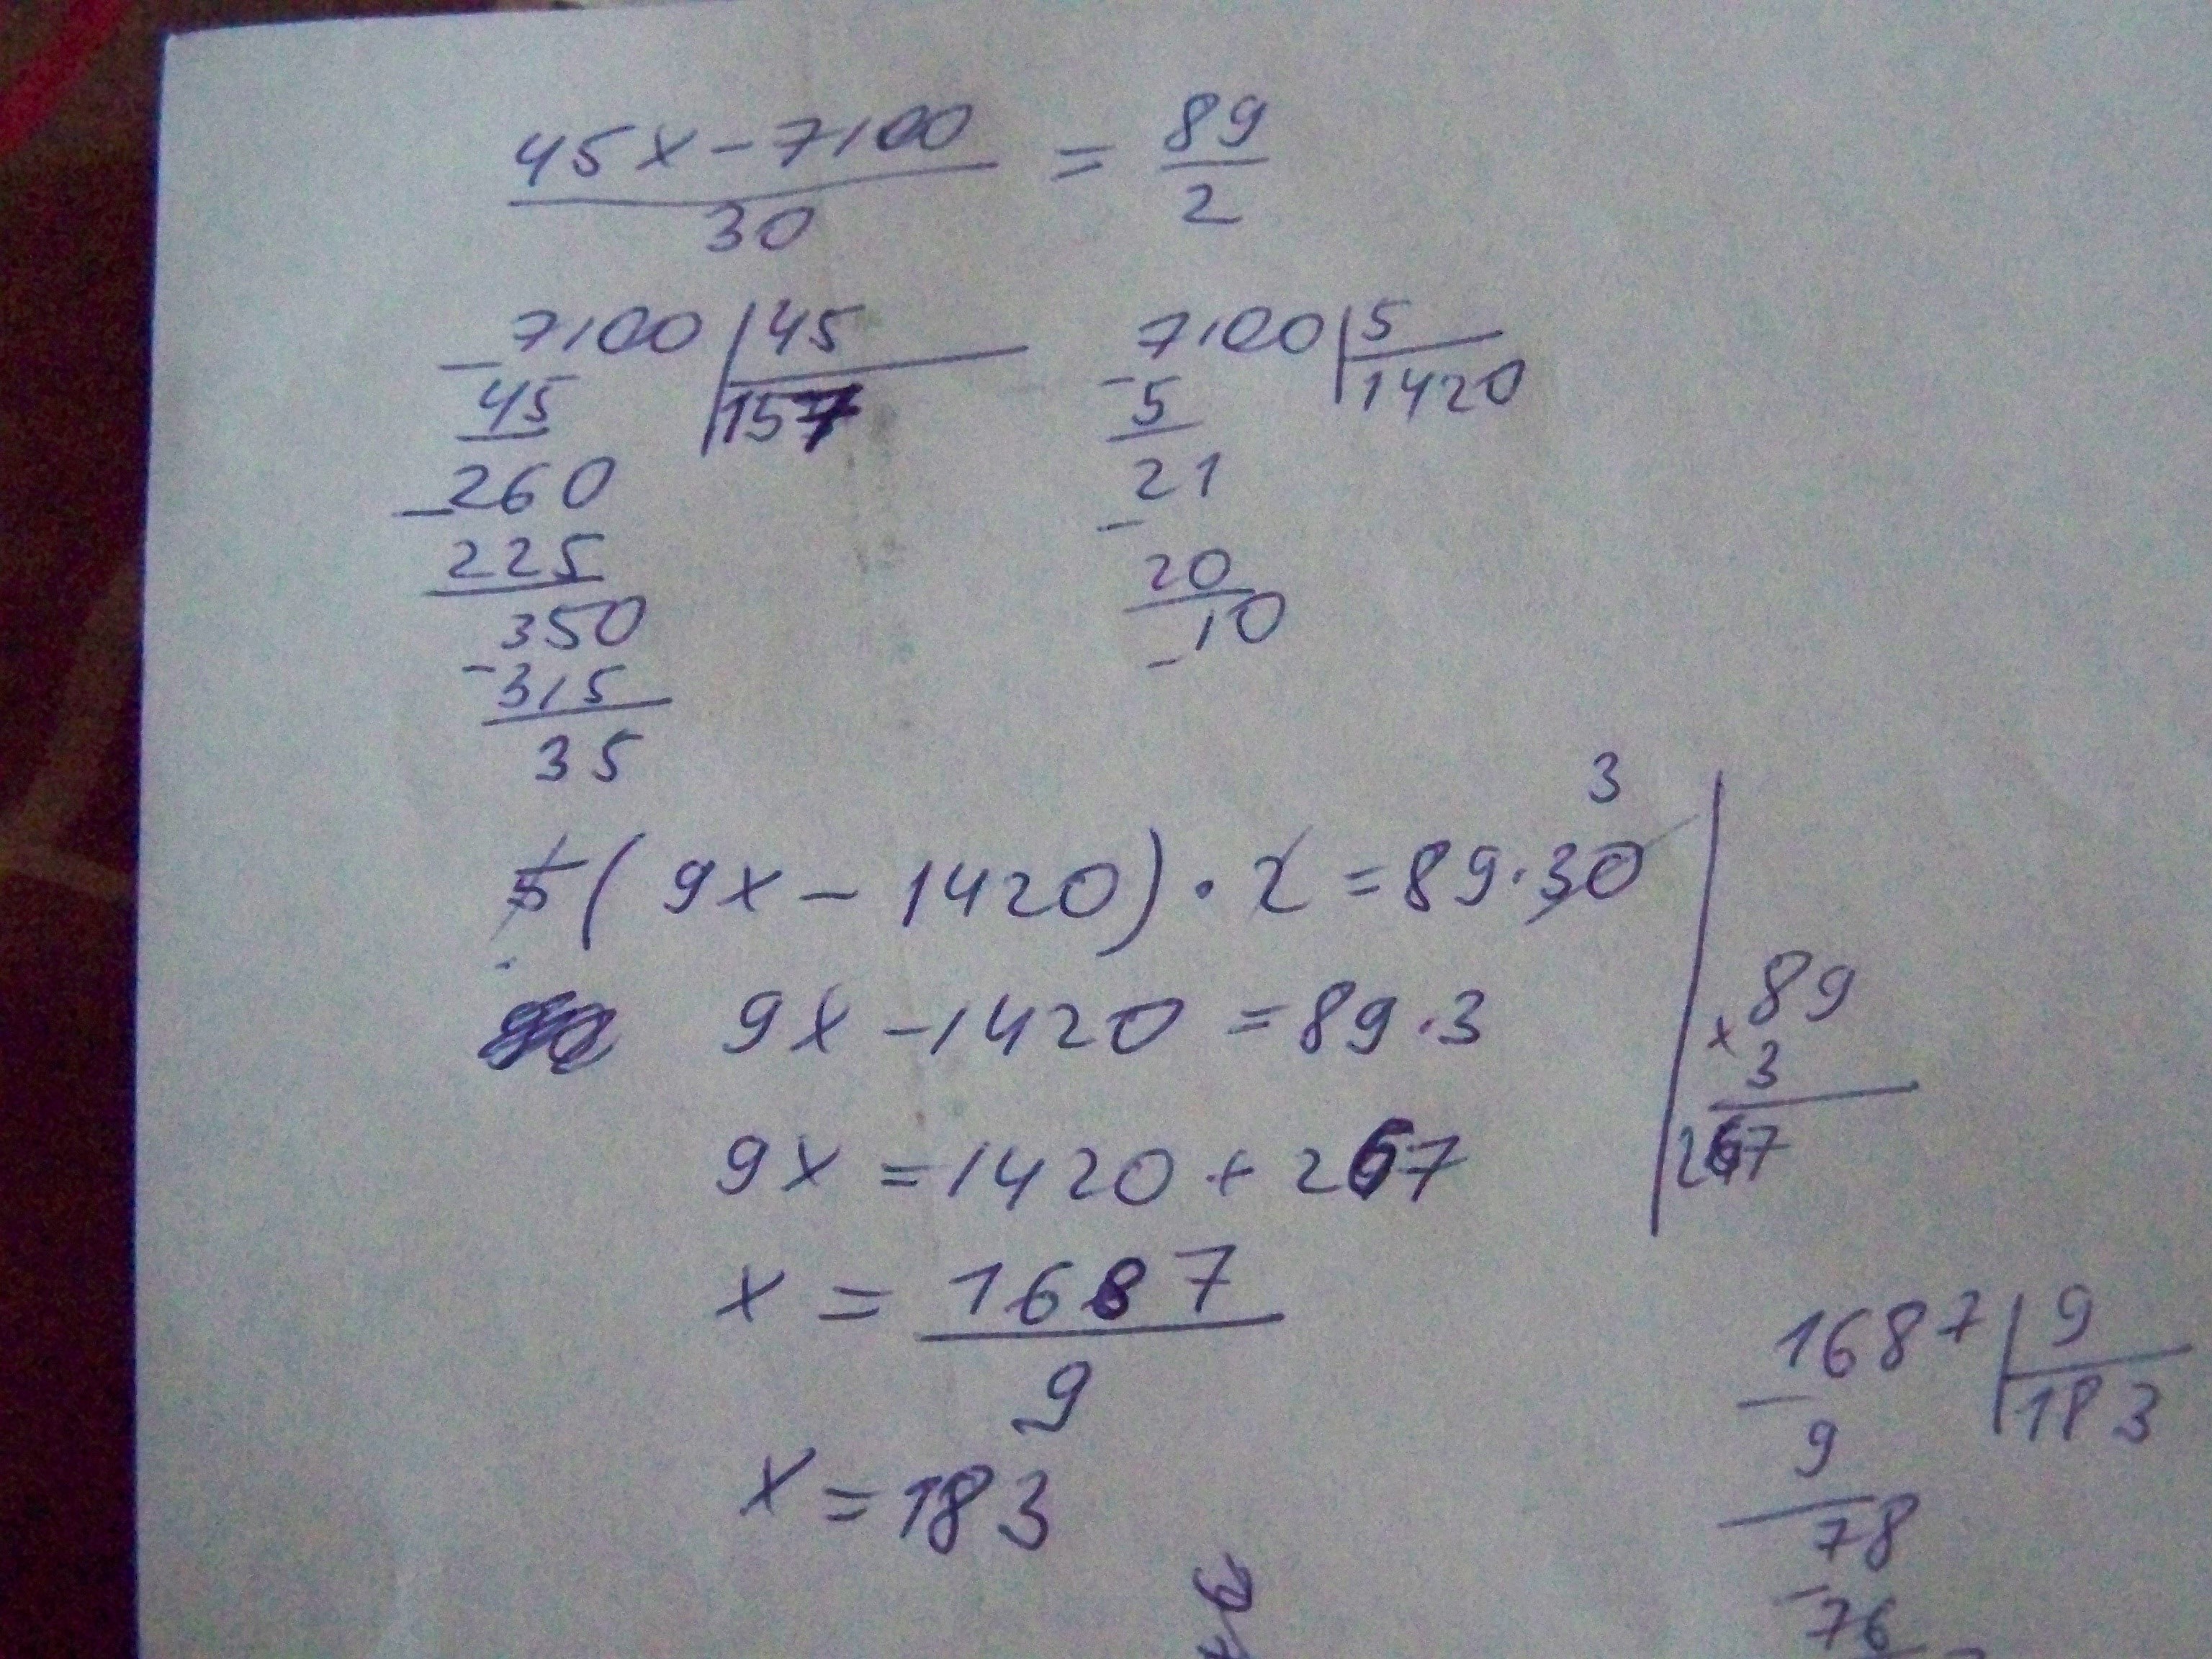 45x-7100 = 89
30 2
-7100 | 45
45 157
-260
225
350
-315
35
7100 | 5
-5 1420
21
-
20
-10
3
5(9x-1420)·2=89·30
9x-1420=89·3
89
x 3
267
9x=1420+267
x=1687
9
1687 | 9
- 183
9
78
-76
x=183